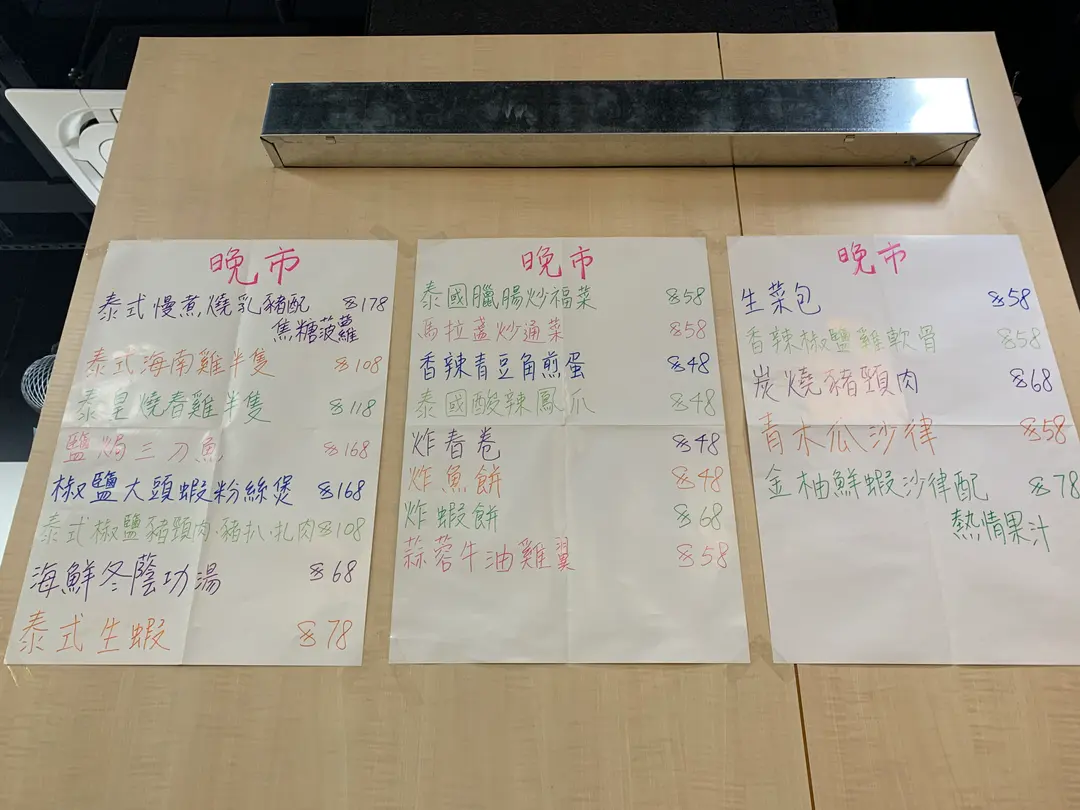 晚市
泰式慢煮燒乳豬配 $178
焦糖菠蘿
泰式海南雞半隻 $108
泰皇燒春雞半隻 $118
鹽焗三刀魚 $168
椒鹽大頭蝦粉絲煲 $168
泰式椒鹽豬頸肉·豬扒·扎肉 $108
海鮮冬蔭功湯 $68
泰式生蝦 $78
晚市
泰國臘腸炒福菜 $58
馬拉盞炒通菜 $58
香辣青豆角煎蛋 $48
泰國酸辣鳳爪 $48
炸春卷 $48
炸魚餅 $48
炸蝦餅 $68
蒜蓉牛油雞翼 $58
晚市
生菜包 $58
香辣椒鹽雞軟骨 $58
炭燒豬頸肉 $68
青木瓜沙律 $58
金柚鮮蝦沙律配 $78
熱情果汁